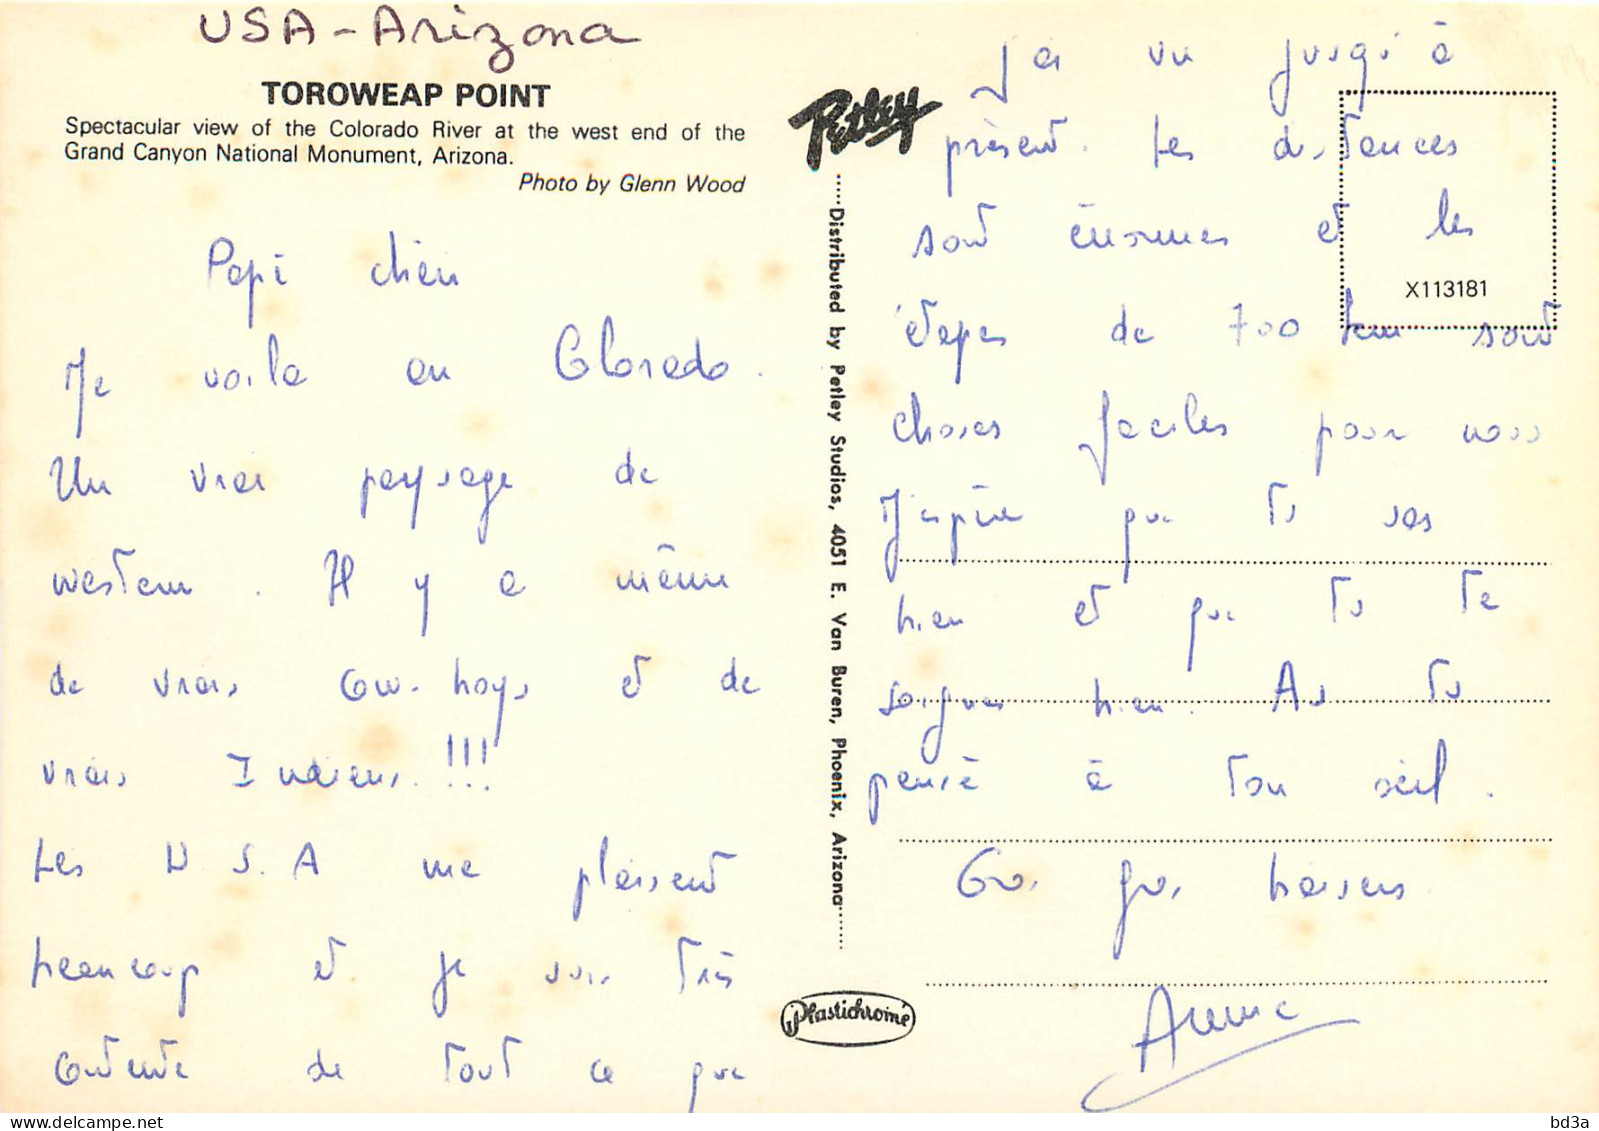 USA - Arizona
TOROWEAP POINT
Spectacular view of the Colorado River at the west end of the
Grand Canyon National Monument, Arizona.
Photo by Glenn Wood
Papi chéri
Me voila au Colorado.
Un vrai paysage de
western. Il y a même
de vrais cow-boys et de
vrais Indiens.!!!
Les U.S.A me plaisent
beaucoup et je suis très
contente de tout ce que
Petley
Distributed by Petley Studios, 4051 E. Van Buren, Phoenix, Arizona
Plastichrome
j'ai vu jusqu'à
présent. Les distances
sont énormes et les
X113181
étapes de 700 km sont
choses faciles pour nous
J'espère que tu vas
bien et que tu te
soignes bien. As tu
pensé à ton œil.
Gros gros baisers
Anne
bd3a